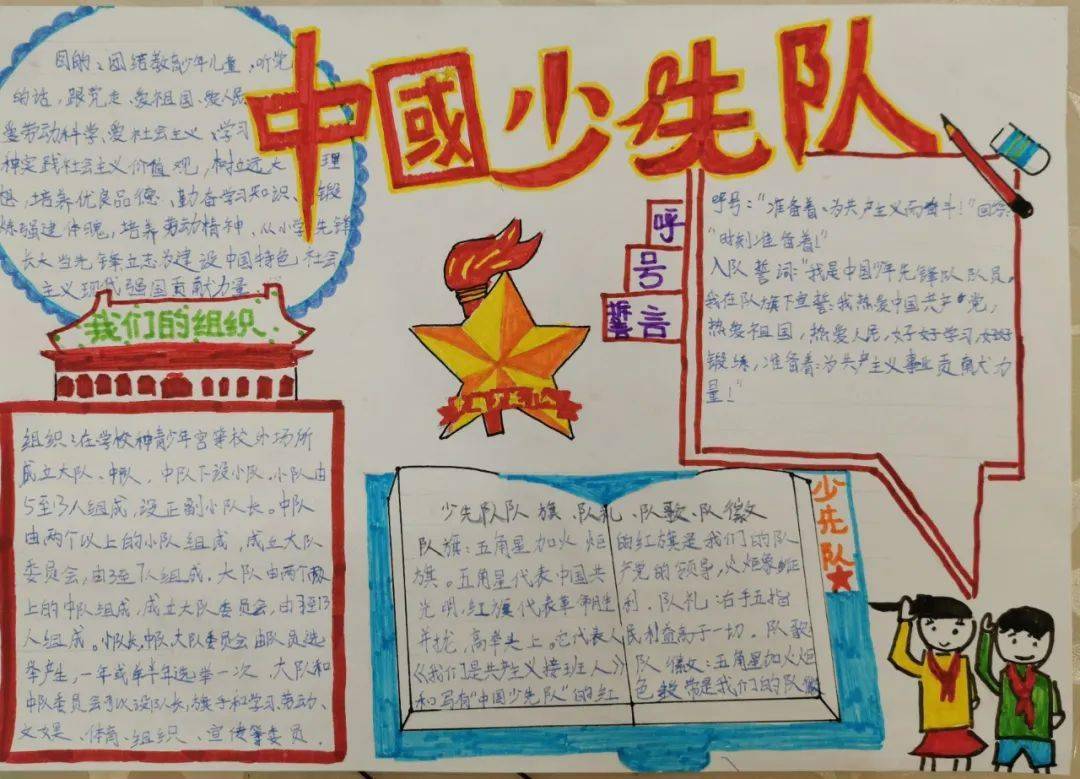 中國少先队
目的：团结教育少年儿童，听党
的话，跟党走，爱祖国、爱人民
爱劳动科学、爱社会主义，学习
神实践社会主义价值观，树立远大理
想，培养优良品德、勤奋学习知识、锻
炼强健体魄，培养劳动精神，从小学先锋
长大当先锋立志为建设中国特色社会
主义现代强国贡献力量
我们的组织
组织：在学校和青少年宫等校外场所
成立大队、中队，中队下设小队，小队由
5至13人组成，设正副小队长。中队
由两个以上的小队组成，成立大队
委员会，由3至7人组成。大队由两个
上的中队组成，成立大队委员会，由3至13
人组成。小队长，中队大队委员会由队员选
举产生，一年或半年选举一次。大队和
中队委员会可以设队长，旗手和学习、劳动、
文娱、体育、组织、宣传等委员．
呼号誓言
呼号：“准备着、为共产主义而奋斗！”回答：
“时刻准备着！”
入队誓词：“我是中国少年先锋队队员。
我在队旗下宣誓：我热爱中国共产党，
热爱祖国，热爱人民，好好学习，好好
锻炼，准备着：为共产主义事业贡献力
量！”
少先队
少先队队旗、队礼、队歌、队徽
队旗：五角星加火炬的红旗是我们的队
旗。五角星代表中国共产党的领导，火炬象征
光明，红旗代表革命胜利．队礼：右手五指
并拢，高举头上。它代表人民利益高于一切．队歌
《我们是共产主义接班人》队徽：五角星加火炬
和写有“中国少先队”的红色绶带是我们的队徽